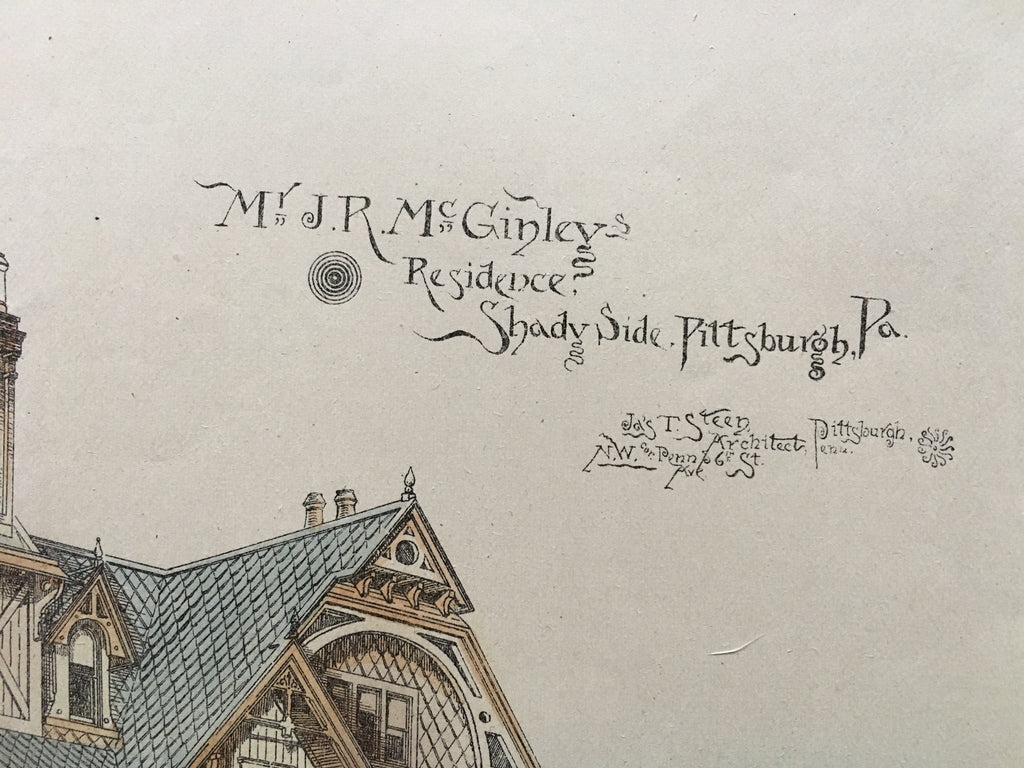 Mr. J. R. McGinleys
Residence,
Shady Side, Pittsburgh, Pa.
Jas T. Steen,
Architect, Pittsburgh,
Penn.
N.W. Cor. Penn & 6th St.
Ave.